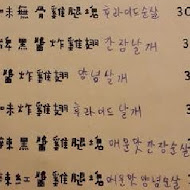 味無骨雞腿塊 후라이드순살 30
辣黑醬炸雞翅 간장날개 3
醬炸雞翅 양념날개
味炸雞翅 후라이드날개
辣黑醬雞腿塊 매운맛간장순살
辣紅醬雞腿塊 매운맛양념순살